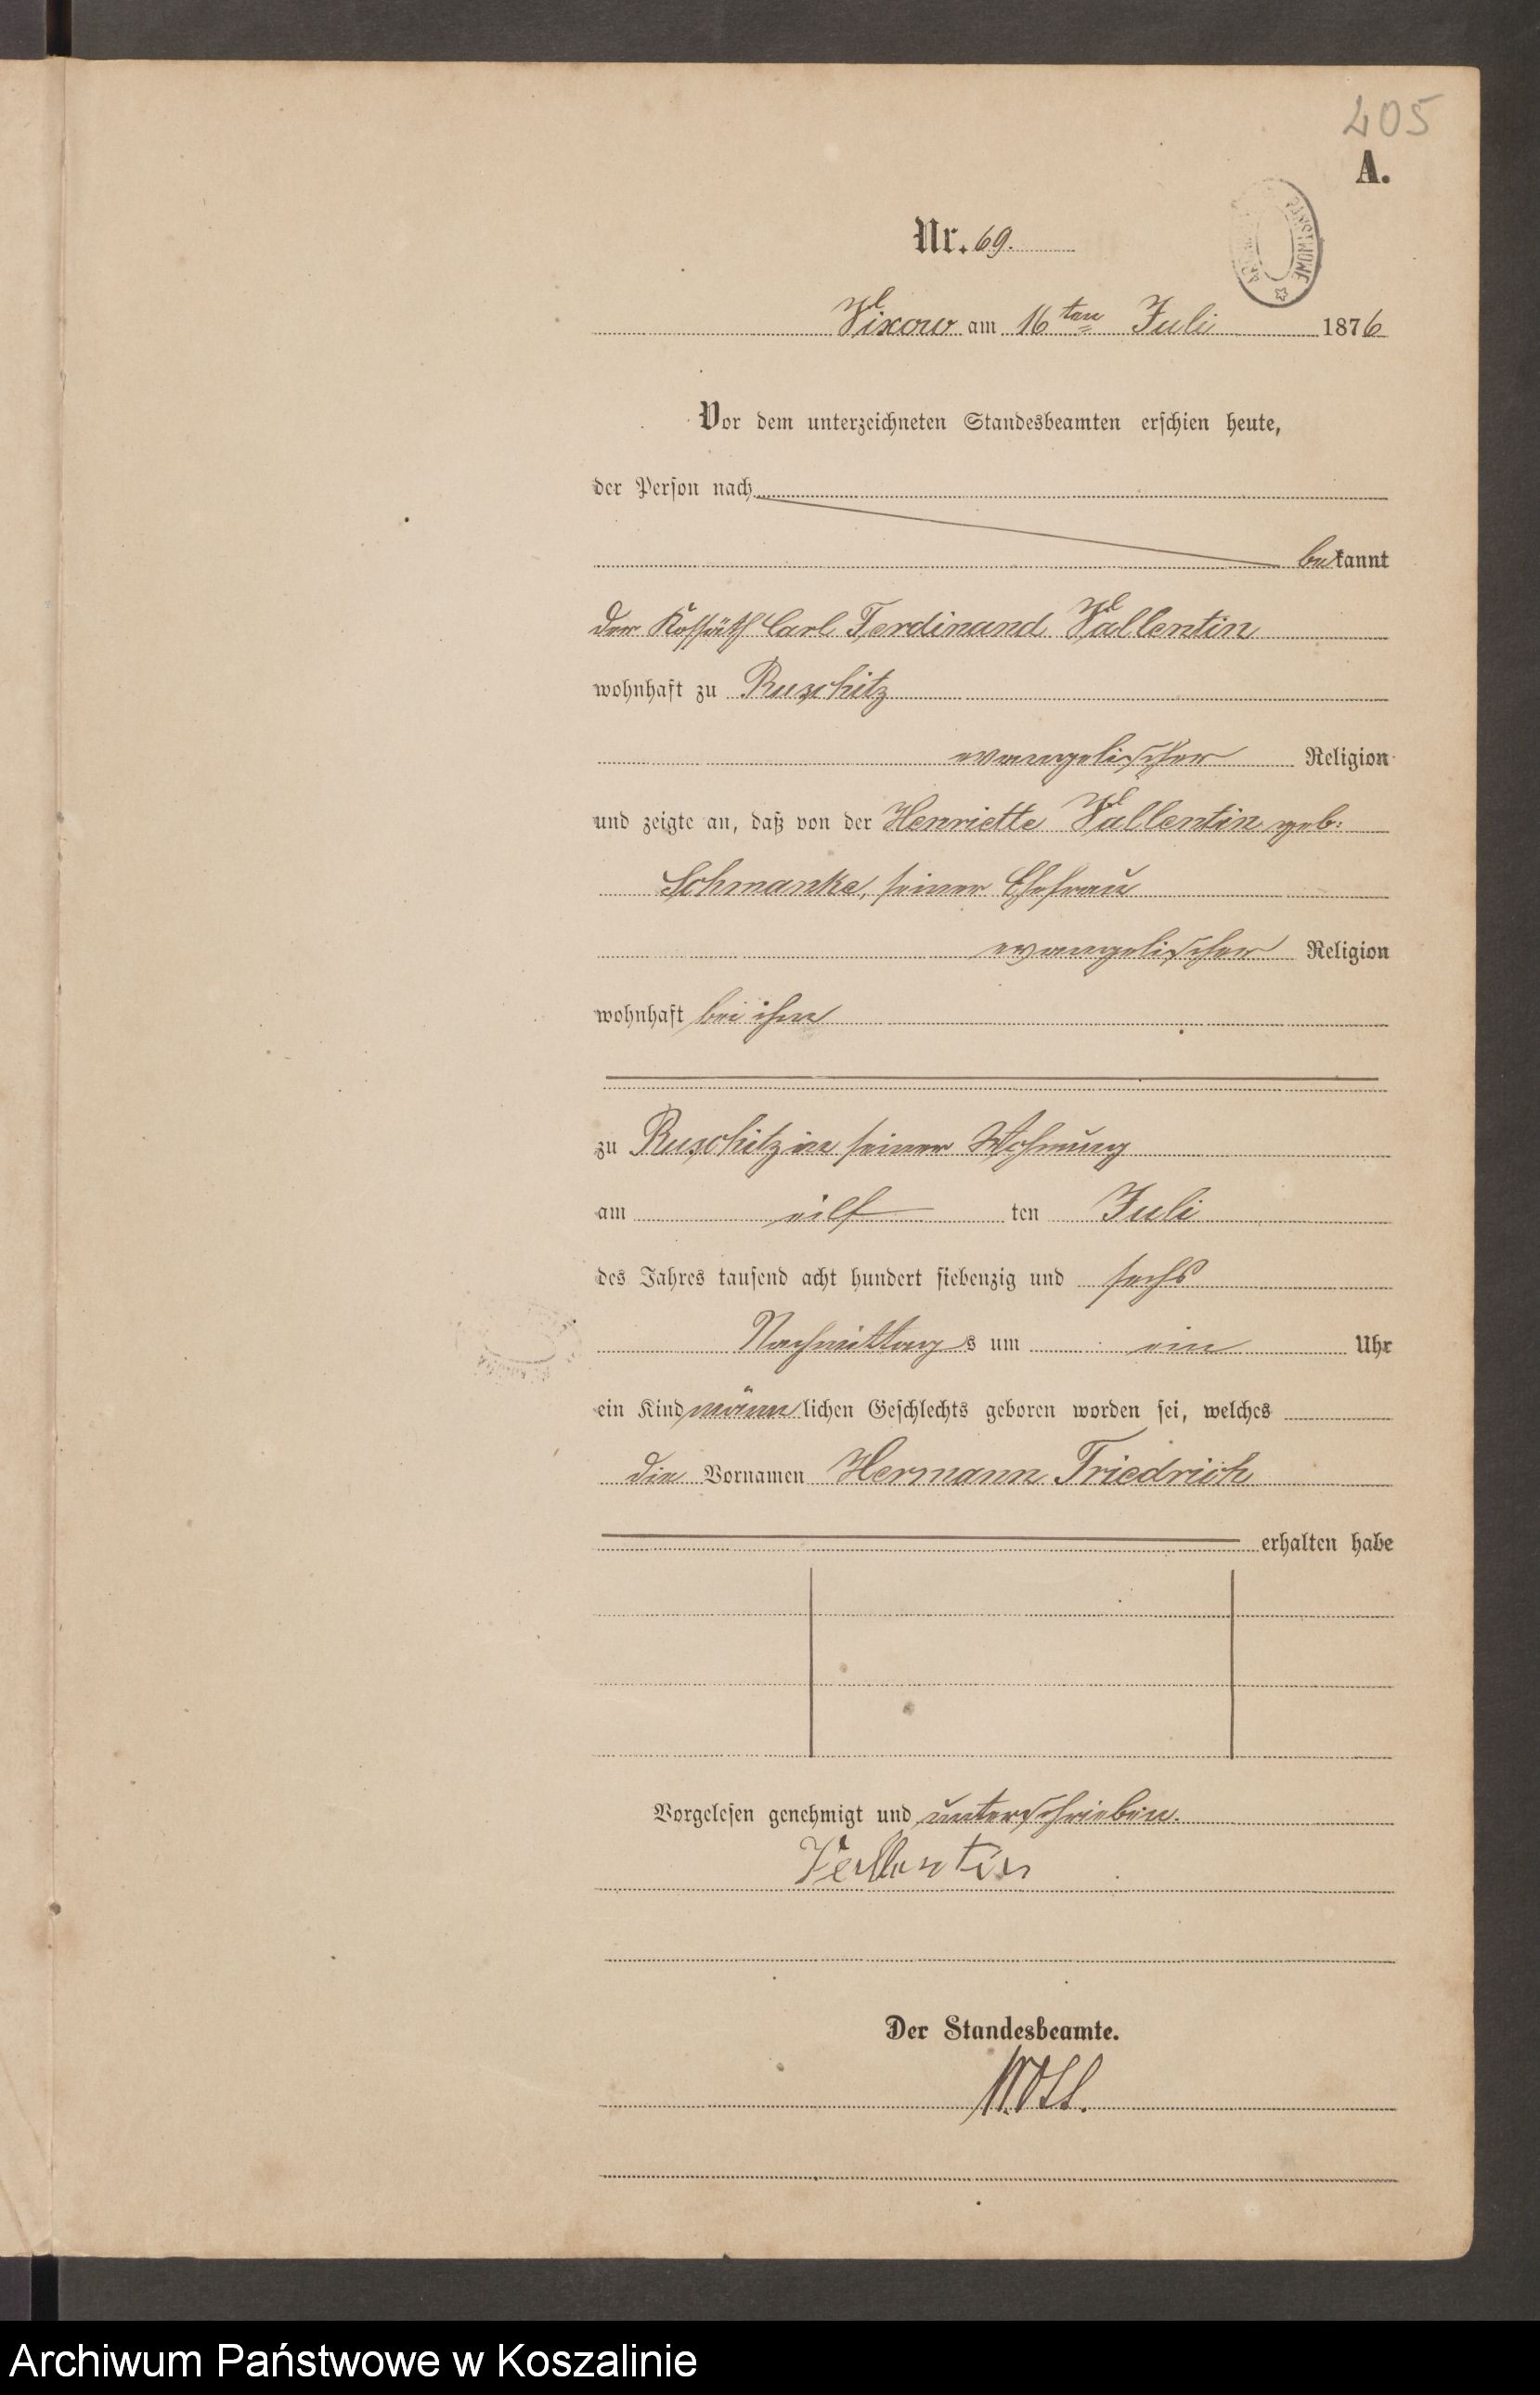 405
A.
Nr. 69.
Vixow am 16ten Juli 1876
Vor dem unterzeichneten Standesbeamten erschien heute,
der Person nach
bekannt
der Kossäth Carl Ferdinand Vallentin
wohnhaft zu Ruschitz
evangelischer Religion
und zeigte an, daß von der Henriette Vallentin geb:
Schmanke, seiner Ehefrau
evangelischer Religion
wohnhaft bei ihm
zu Ruschitz in seiner Wohnung
am eilf ten Juli
des Jahres tausend acht hundert siebenzig und sechs
Nachmittags um ein Uhr
ein Kind männlichen Geschlechts geboren worden sei, welches
die Vornamen Hermann Friedrich
erhalten habe
Vorgelesen genehmigt und unterschrieben.
Vallentin
Der Standesbeamte.
Archiwum Państwowe w Koszalinie